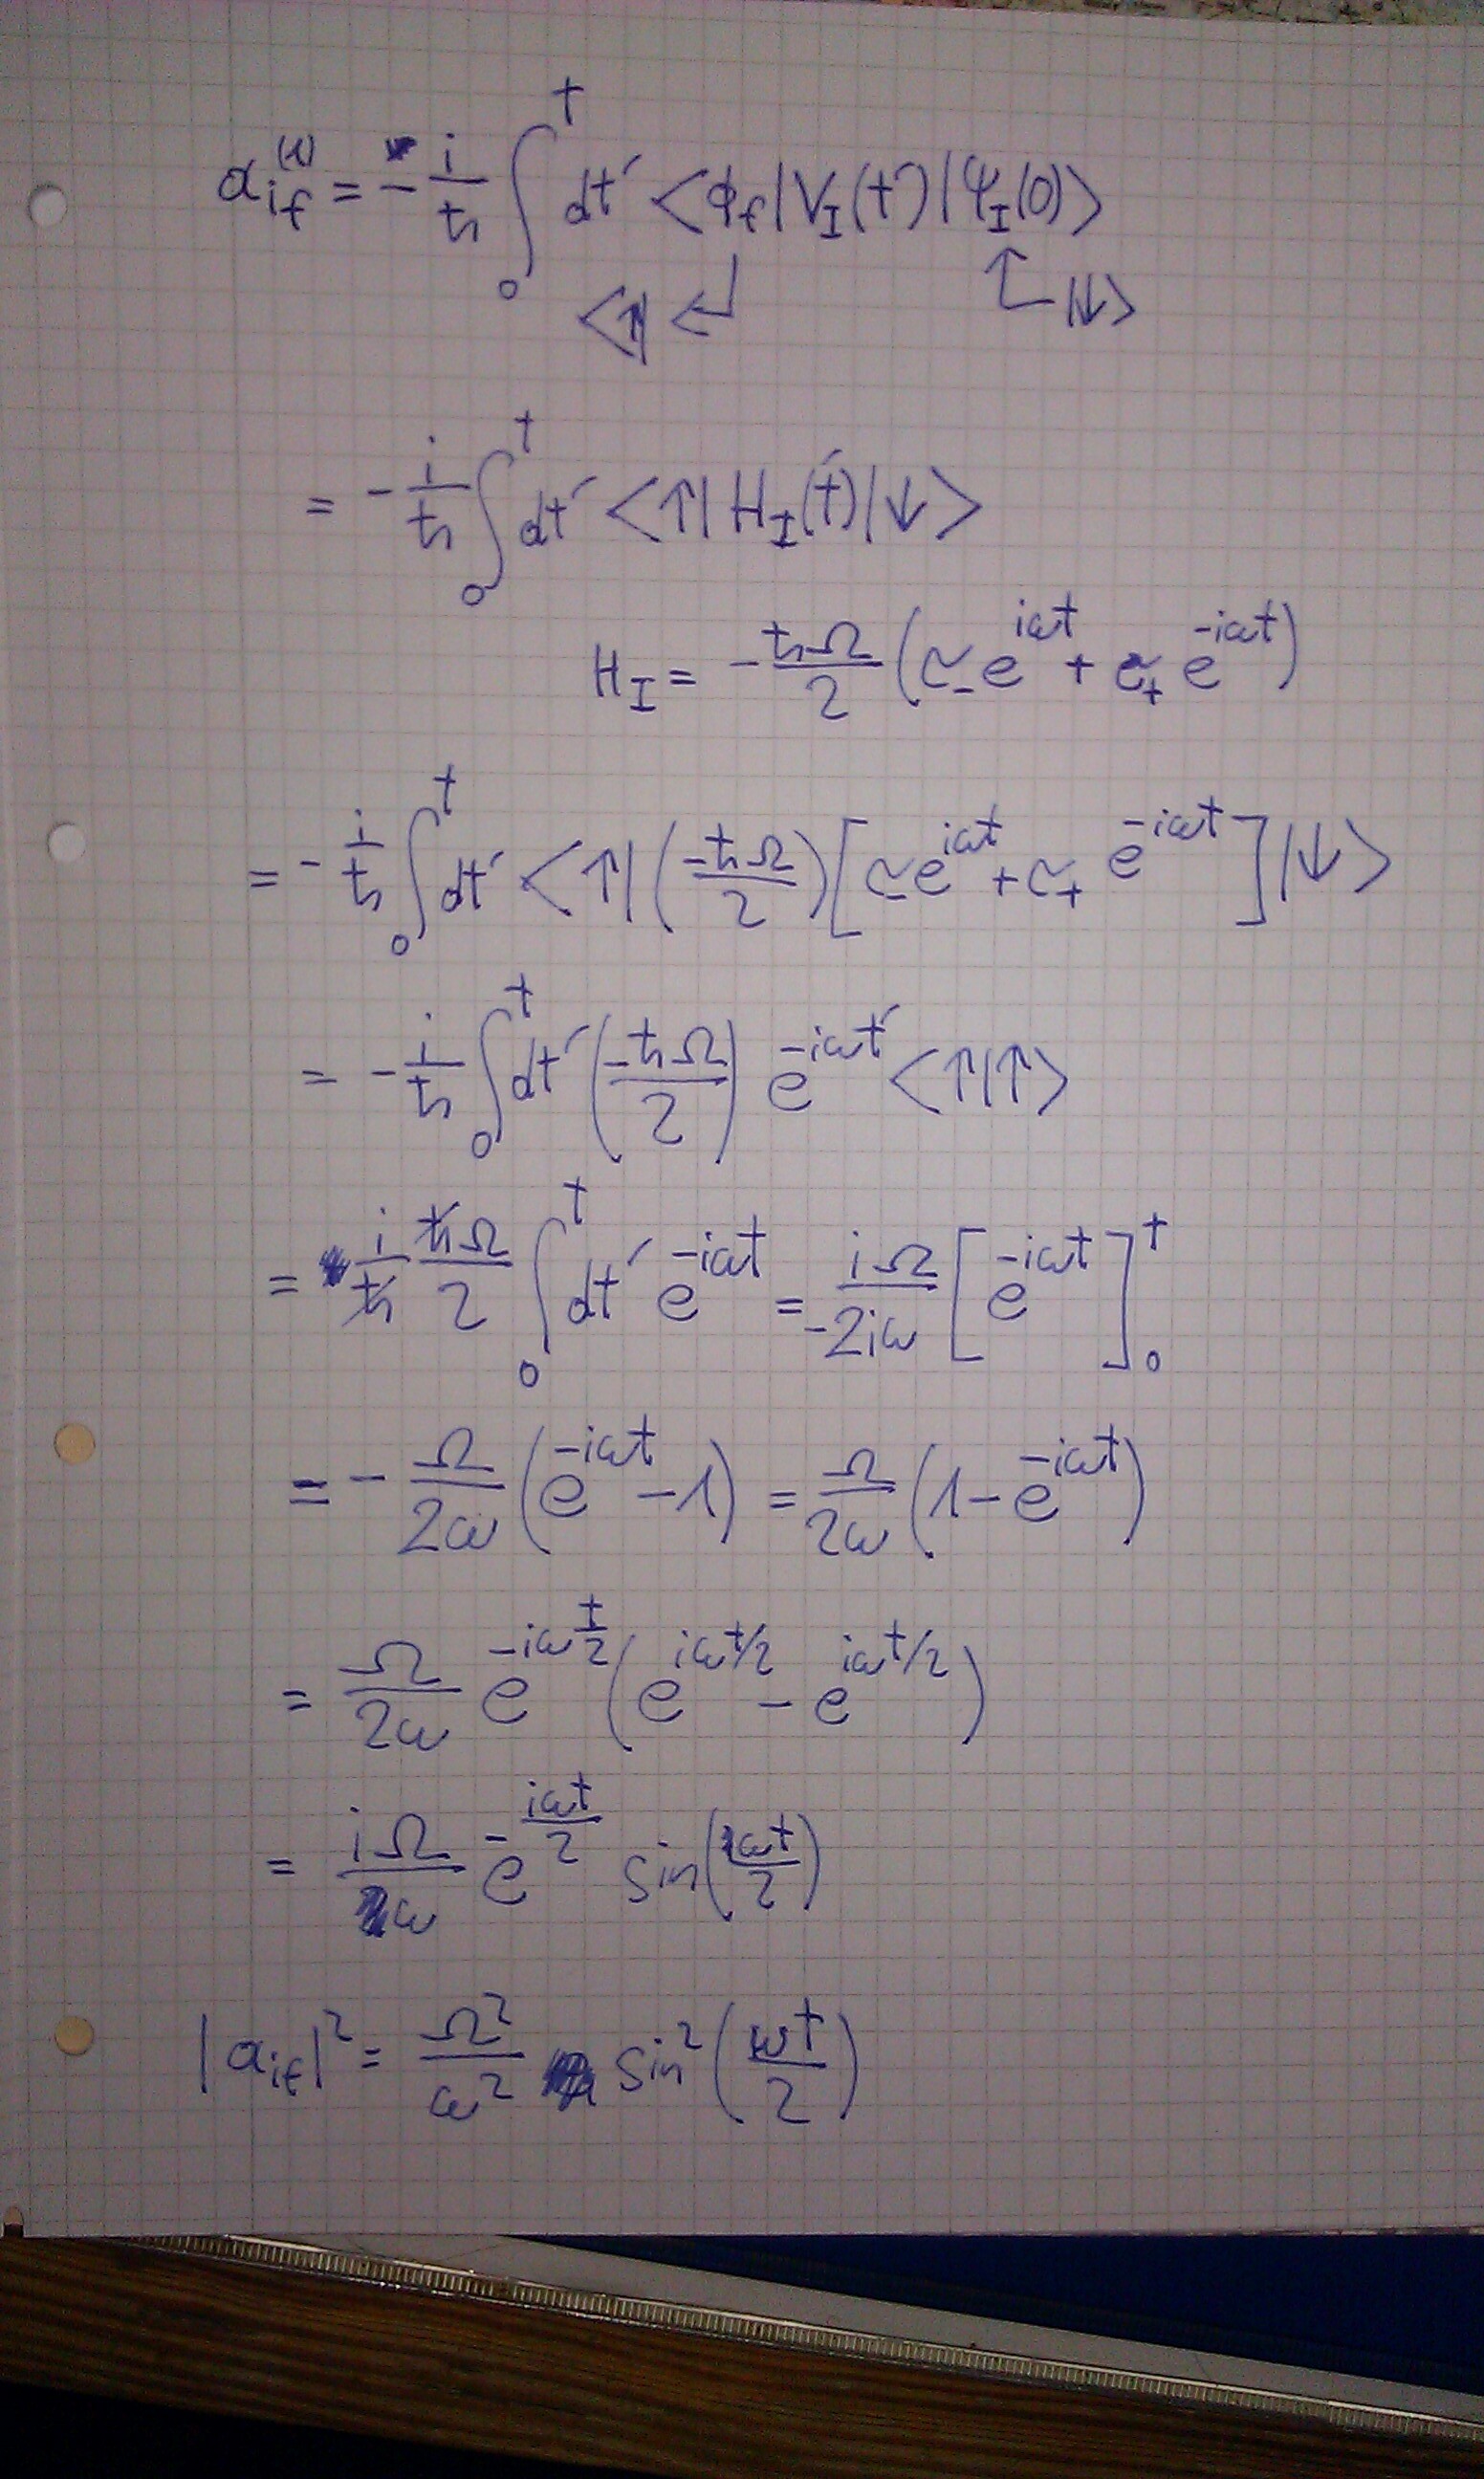 a_if^(1) = - i/ħ ∫_0^t dt' <ϕ_f|V_I(t')|Ψ_I(0)>
<↑| ↵ ↑ |↓>
= - i/ħ ∫_0^t dt' <↑|H_I(t')|↓>
H_I = - ħΩ/2 (σ_- e^{iωt} + σ_+ e^{-iωt})
= - i/ħ ∫_0^t dt' <↑|(-ħΩ/2)[σ_- e^{iωt} + σ_+ e^{-iωt}]|↓>
= - i/ħ ∫_0^t dt' (-ħΩ/2) e^{-iωt'} <↑|↑>
= i/ħ ħΩ/2 ∫_0^t dt' e^{-iωt} = iΩ/-2iω [e^{-iωt}]_0^t
= - Ω/2ω (e^{-iωt} - 1) = Ω/2ω (1 - e^{-iωt})
= Ω/2ω e^{-iω t/2} (e^{iωt/2} - e^{iωt/2})
= iΩ/ω e^{-iωt/2} sin(ωt/2)
|a_if|^2 = Ω^2/ω^2 sin^2(ωt/2)